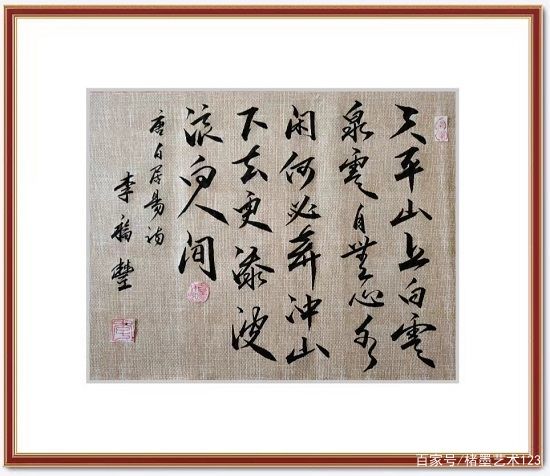 天平山上白雲
泉雲自無心水
闲何必奔冲山
下去更添波
浪向人间
唐白居易诗
李福豐
百家号/楮墨艺术123